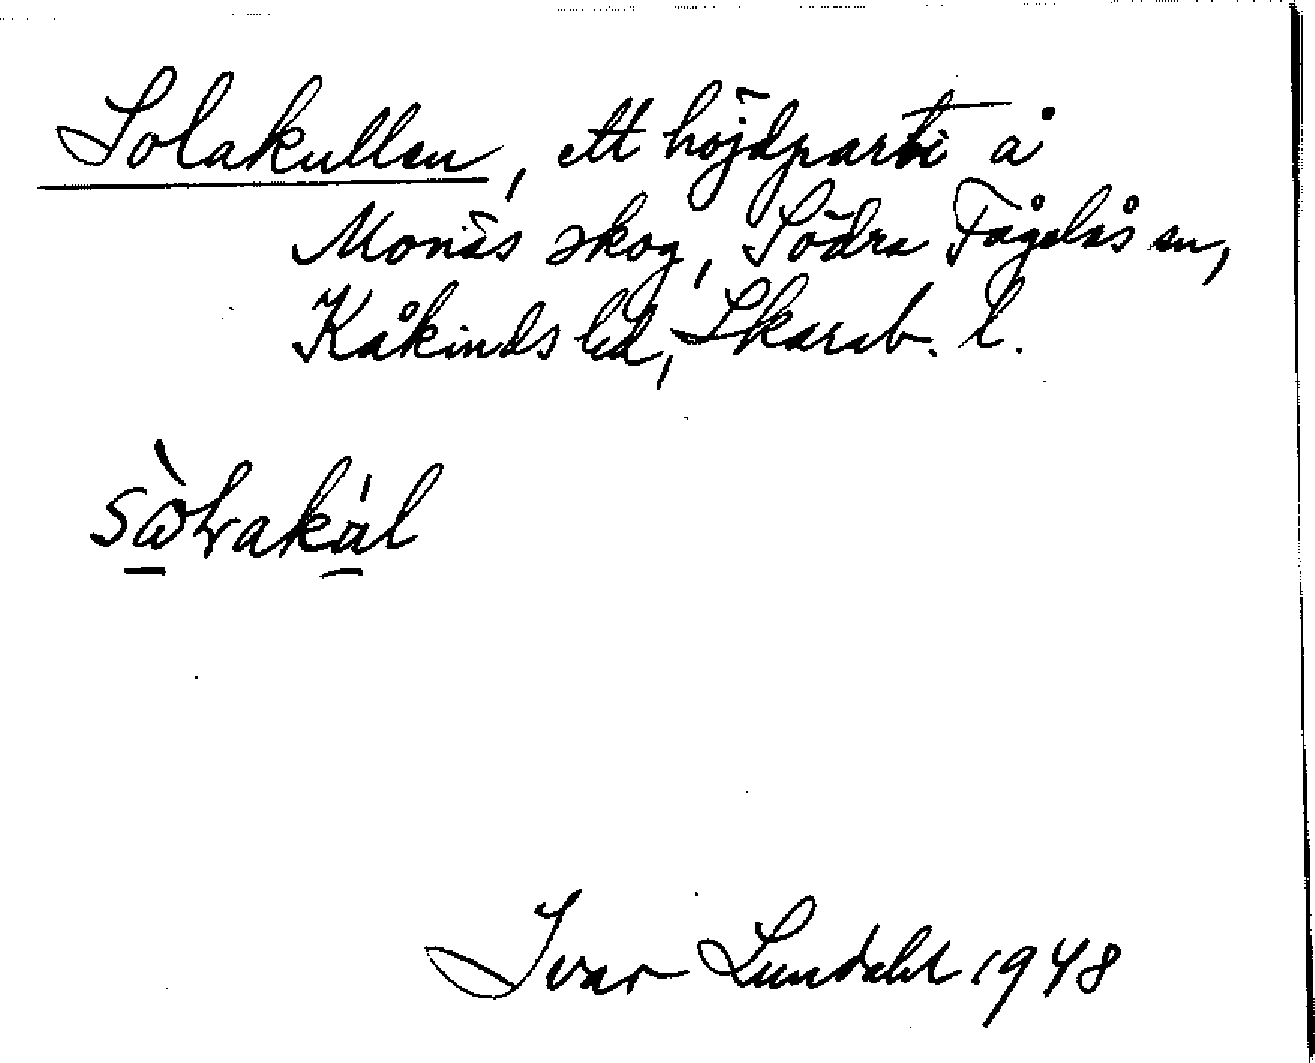 Solakullen, ett höjdparti å
Monäs skog, Södra Fågelås sn,
Kåkinds hd, Skarab. l.
Ivar Lundahl 1948